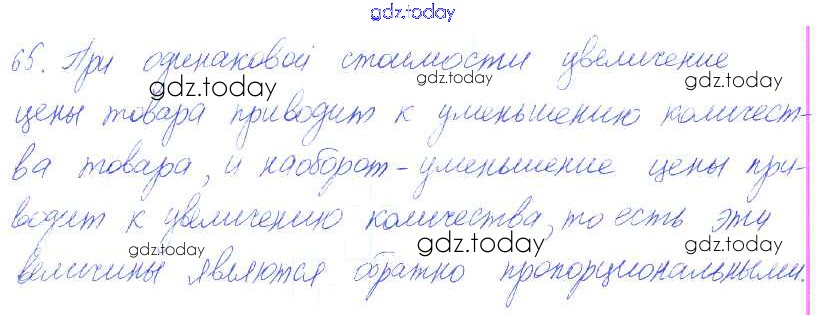 gdz.today
65. При одинаковой стоимости увеличение
gdz.today gdz.today
цены товара приводит к уменьшению количест-
gdz.today
ва товара, и наоборот-уменьшение цены при-
gdz.today gdz.today
водит к увеличению количества, то есть эти
gdz.today gdz.today gdz.today
величины являются обратно пропорциональными.